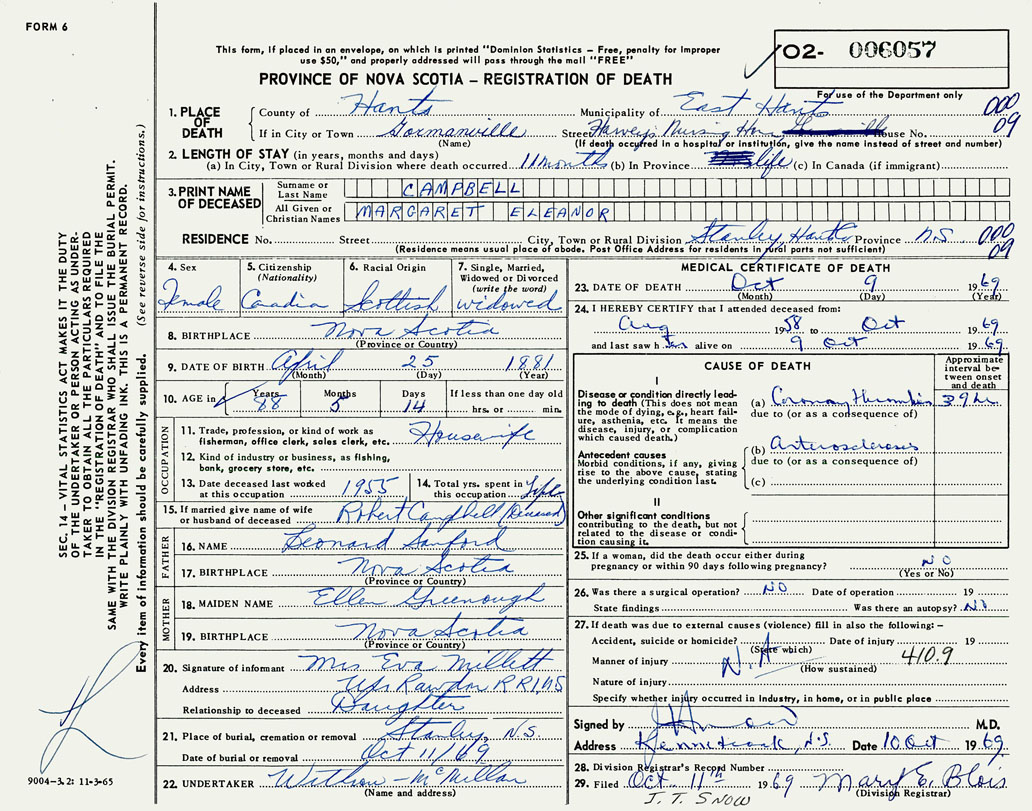 FORM 6
This form, if placed in an envelope, on which is printed "Dominion Statistics – Free, penalty for improper
use $50," and properly addressed will pass through the mail "FREE"
PROVINCE OF NOVA SCOTIA – REGISTRATION OF DEATH
O2- 006057
For use of the Department only
SEC. 14 – VITAL STATISTICS ACT MAKES IT THE DUTY
OF THE UNDERTAKER OR PERSON ACTING AS UNDER-
TAKER TO OBTAIN ALL THE PARTICULARS REQUIRED
IN THE "REGISTRATION OF DEATH" AND TO FILE THE
SAME WITH THE DIVISION REGISTRAR WHO SHALL ISSUE THE BURIAL PERMIT.
WRITE PLAINLY WITH UNFADING INK. THIS IS A PERMANENT RECORD.
Every item of information should be carefully supplied. (See reverse side for instructions.)
1. PLACE OF DEATH County of Hants Municipality of East Hants 000
If in City or Town Gormanville Street Harvey's Nursing Home House No. 09
(Name) (If death occurred in a hospital or institution, give the name instead of street and number)
2. LENGTH OF STAY (in years, months and days)
(a) In City, Town or Rural Division where death occurred 11 months (b) In Province life (c) In Canada (if immigrant)
3. PRINT NAME OF DECEASED Surname or Last Name CAMPBELL
All Given or Christian Names MARGARET ELEANOR
RESIDENCE No. Street City, Town or Rural Division Stanley, Hants Province N.S. 000
(Residence means usual place of abode. Post Office Address for residents in rural parts not sufficient) 09
4. Sex Female
5. Citizenship (Nationality) Canadian
6. Racial Origin Scottish
7. Single, Married, Widowed or Divorced (write the word) widowed
8. BIRTHPLACE Nova Scotia
(Province or Country)
9. DATE OF BIRTH April 25 1881
(Month) (Day) (Year)
10. AGE in Years 88 Months 5 Days 14 If less than one day old hrs. or min.
OCCUPATION
11. Trade, profession, or kind of work as fisherman, office clerk, sales clerk, etc. Housewife
12. Kind of industry or business, as fishing, bank, grocery store, etc.
13. Date deceased last worked at this occupation 1955
14. Total yrs. spent in this occupation Life
15. If married give name of wife or husband of deceased Robert Campbell (Deceased)
FATHER
16. NAME Leonard Sanford
17. BIRTHPLACE Nova Scotia
(Province or Country)
MOTHER
18. MAIDEN NAME Ellen Greenough
19. BIRTHPLACE Nova Scotia
(Province or Country)
20. Signature of informant Mrs Eva Millett
Address Up. Rawdon RR1, NS
Relationship to deceased Daughter
21. Place of burial, cremation or removal Stanley, N.S.
Date of burial or removal Oct 11/69
22. UNDERTAKER Withrow - McMillan
(Name and address)
9004-3.2: 11-3-65
MEDICAL CERTIFICATE OF DEATH
23. DATE OF DEATH Oct 9 1969
(Month) (Day) (Year)
24. I HEREBY CERTIFY that I attended deceased from:
Aug 1958 to Oct 1969
and last saw her alive on 9 Oct 1969.
CAUSE OF DEATH
Approximate interval between onset and death
I
Disease or condition directly leading to death (This does not mean the mode of dying, e.g., heart failure, asthenia, etc. It means the disease, injury, or complication which caused death.)
(a) Coronary Thrombosis 39 hr.
due to (or as a consequence of)
Antecedent causes
Morbid conditions, if any, giving rise to the above cause, stating the underlying condition last.
(b) Arteriosclerosis
due to (or as a consequence of)
(c)
II
Other significant conditions
contributing to the death, but not related to the disease or condition causing it.
25. If a woman, did the death occur either during
pregnancy or within 90 days following pregnancy? NO
(Yes or No)
26. Was there a surgical operation? NO Date of operation 19
State findings Was there an autopsy? NO
27. If death was due to external causes (violence) fill in also the following: –
Accident, suicide or homicide? Date of injury 19
(State which)
Manner of injury N.A 410.9
(How sustained)
Nature of injury
Specify whether injury occurred in industry, in home, or in public place
Signed by M.D.
Address Kennetcook, N.S. Date 10 Oct 1969.
28. Division Registrar's Record Number
29. Filed Oct. 11th 1969 Mary E. Blois
(Division Registrar)
J. T. SNOW